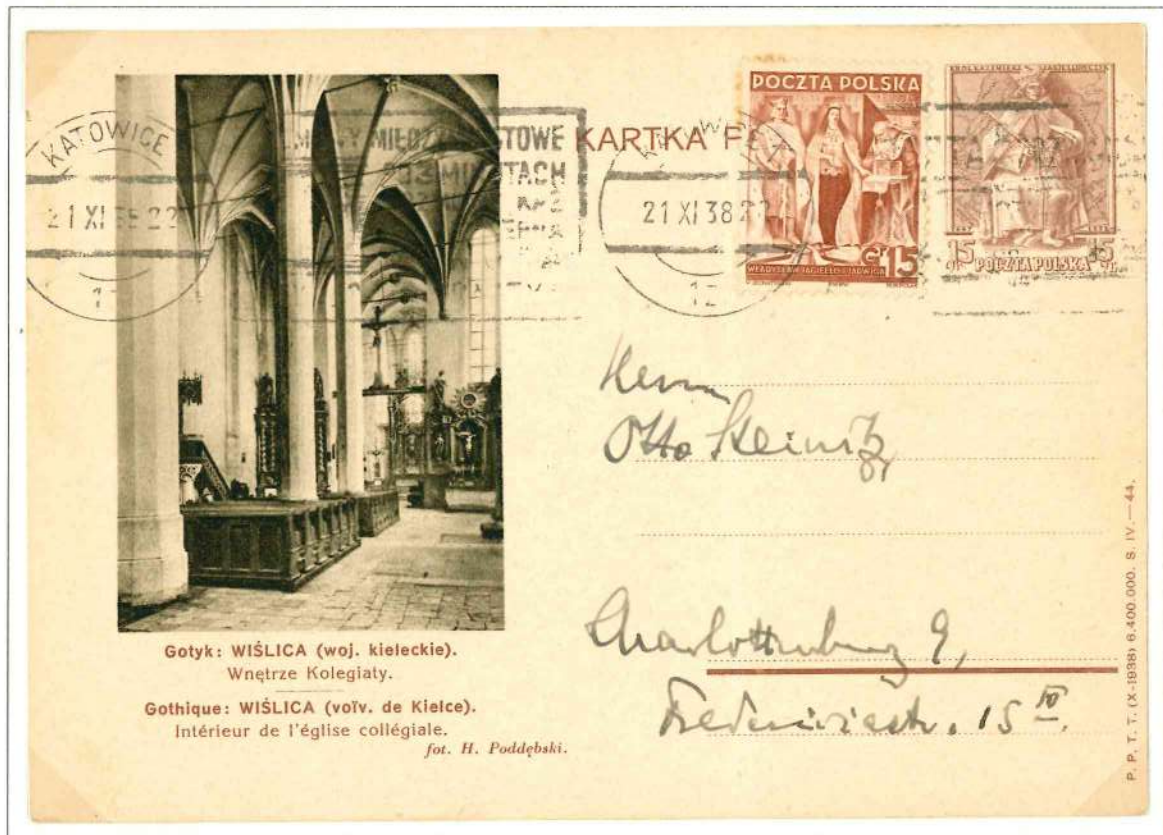 KATOWICE
21 XI 38 22
MIĘDZY
KARTKA
21 XI 38
12
POCZTA POLSKA
WŁADYSŁAW JAGIEŁŁO I JADWIGA
Gr 15
KRÓL KAZIMIERZ JAGIELLOŃCZYK
15 POCZTA POLSKA 15
Herrn
Otto Steinitz,
Charlottenburg 9,
15
Gotyk: WIŚLICA (woj. kieleckie).
Wnętrze Kolegiaty.
Gothique: WIŚLICA (voïv. de Kielce).
Intérieur de l'église collégiale.
fot. H. Poddębski.
P. P. T. T. (X-1938) 6.400.000. S. IV.—44.